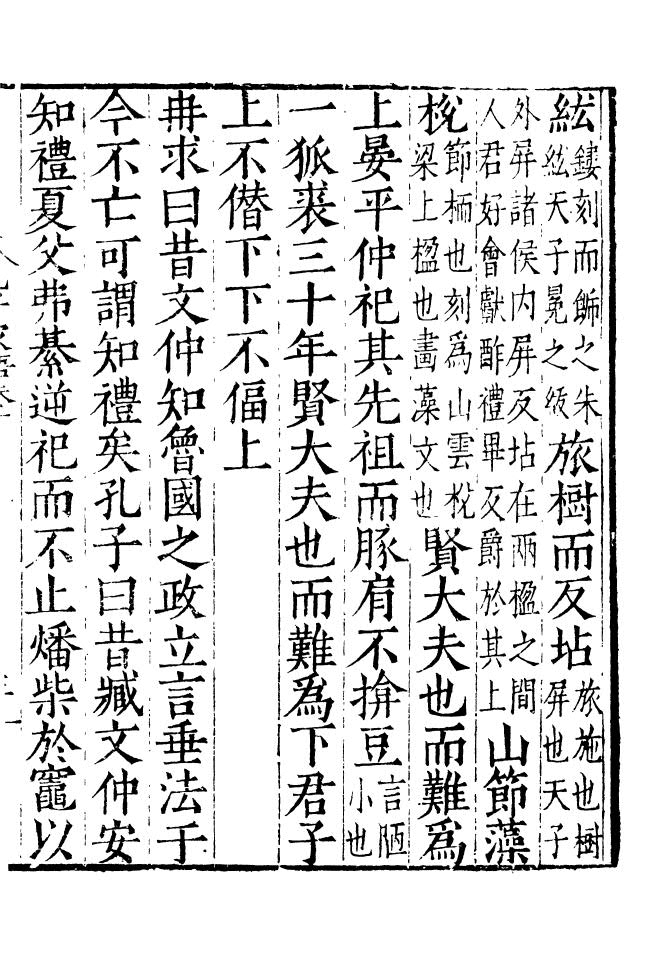 紘鏤刻而飾之朱紘天子冕之紱旅樹而反坫旅施也樹屏也天子
外屏諸侯内屏反坫在兩楹之間人君好會獻酢禮畢反爵於其上山節藻
梲節栭也刻為山雲梲梁上楹也畫藻文也賢大夫也而難為
上晏平仲祀其先祖而豚肩不揜豆言陋小也
一狐裘三十年賢大夫也而難為下君子
上不僭下下不偪上
冉求曰昔文仲知魯國之政立言垂法于
今不亡可謂知禮矣孔子曰昔臧文仲安
知禮夏父弗綦逆祀而不止燔柴於竈以